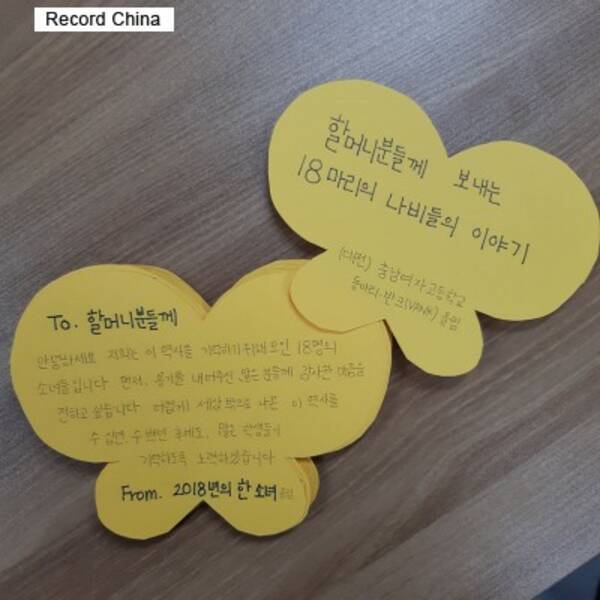 Record China
할머니분들께 보내는
18마리의 나비들의 이야기
(대전) 충남여자고등학교
동아리-반크(VANK) 올림
To. 할머니분들께
안녕하세요 저희는 이 역사를 기억하기위해 모인 18명의
소녀들입니다 먼저, 용기를 내어주신 많은 분들께 감사한 마음을
전하고 싶습니다 어렵게 세상 밖으로 나온 이 역사를
수 십년, 수 백년 후에도, 많은 학생들이
기억하도록 노력하겠습니다
From. 2018년의 한 소녀 올림